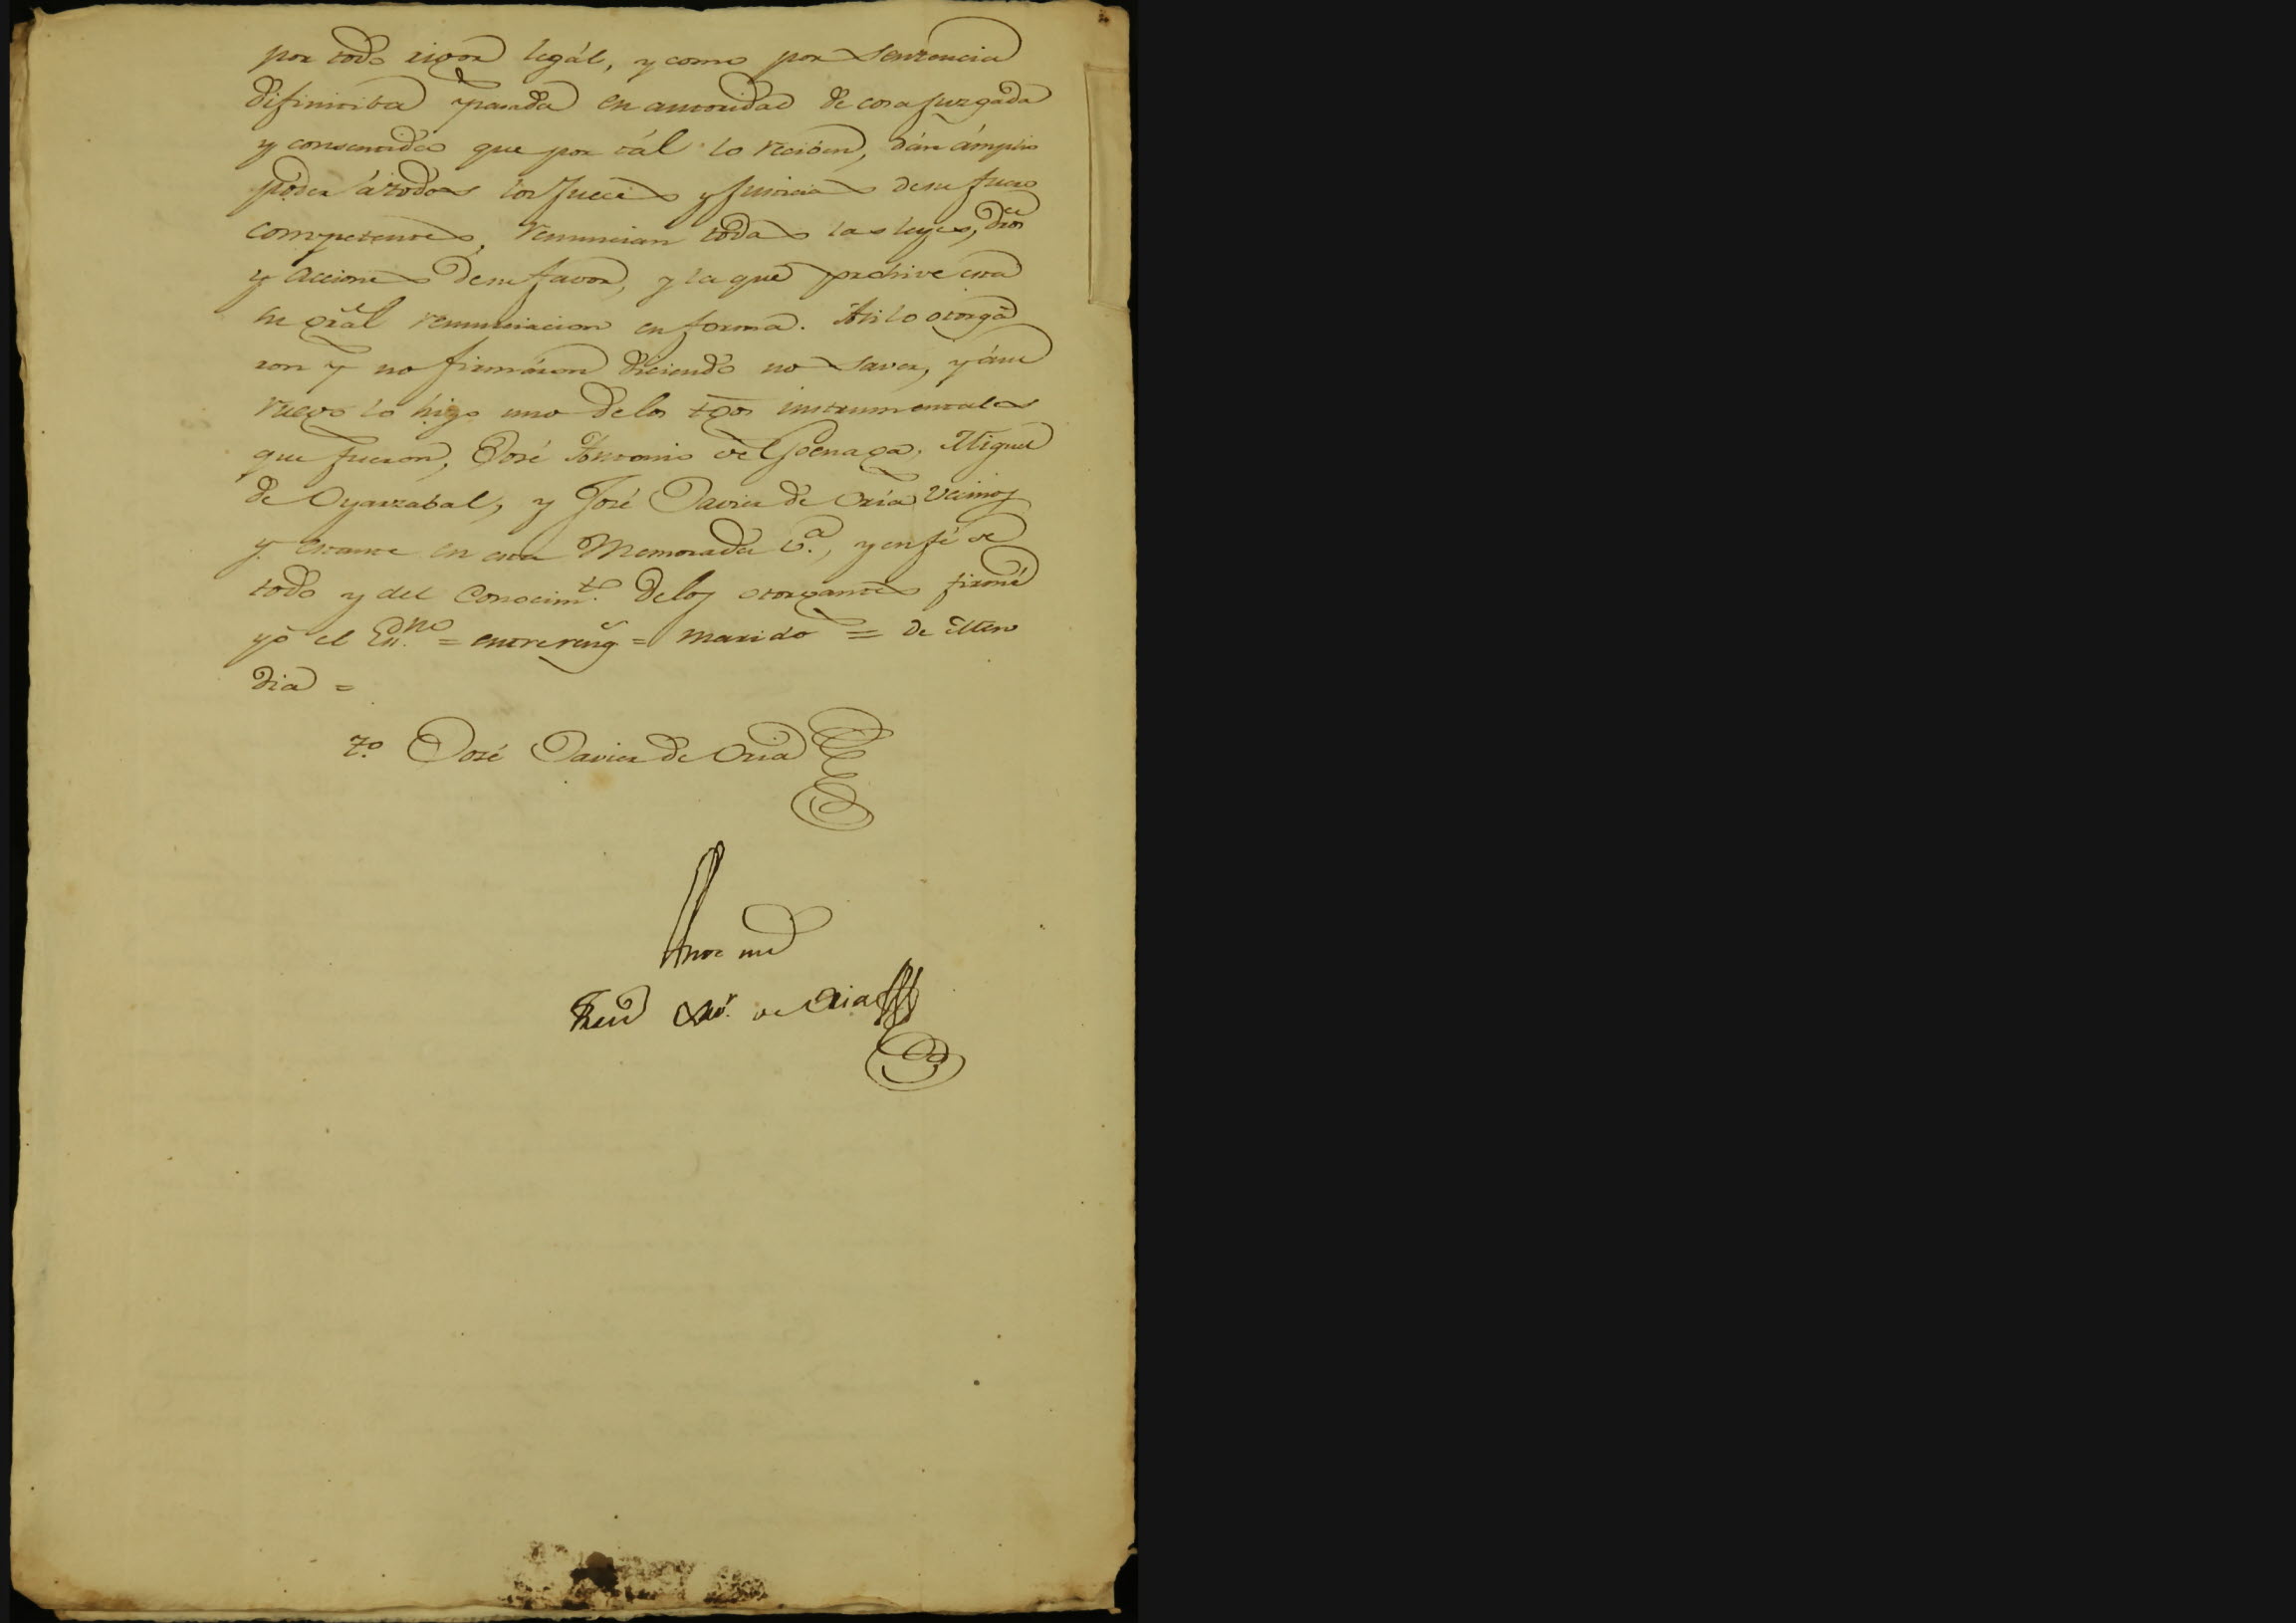 por todo rigor legál, y como por Sentencia
difinitiba pasada en autoridad de cosa juzgada
y consentida que por tál lo reciben, dán ámplio
poder á todos los Jueces y Justicias de su fuero
competentes, renuncian todas las leyes, dros
y acciones de su favor, y la que prohive esta
he gral renunciacion en forma. Asi lo otorgá
ron y no firmáron diciendo no saver, y á su
ruego lo hizo uno de los tgos instrumentales
que fueron, José Antonio de Goenaga, Miguel
de Oyarzabal, y José Javier de Oria Vecinos
y estante en esta Memorada v.a, y en fé de
todo y del Conocim.to de los otorgantes firmé
yo el Es.no = entrereng = marido = de Men
dia =
T.o José Javier de Oria
Ante mi
Xav.r de Oria